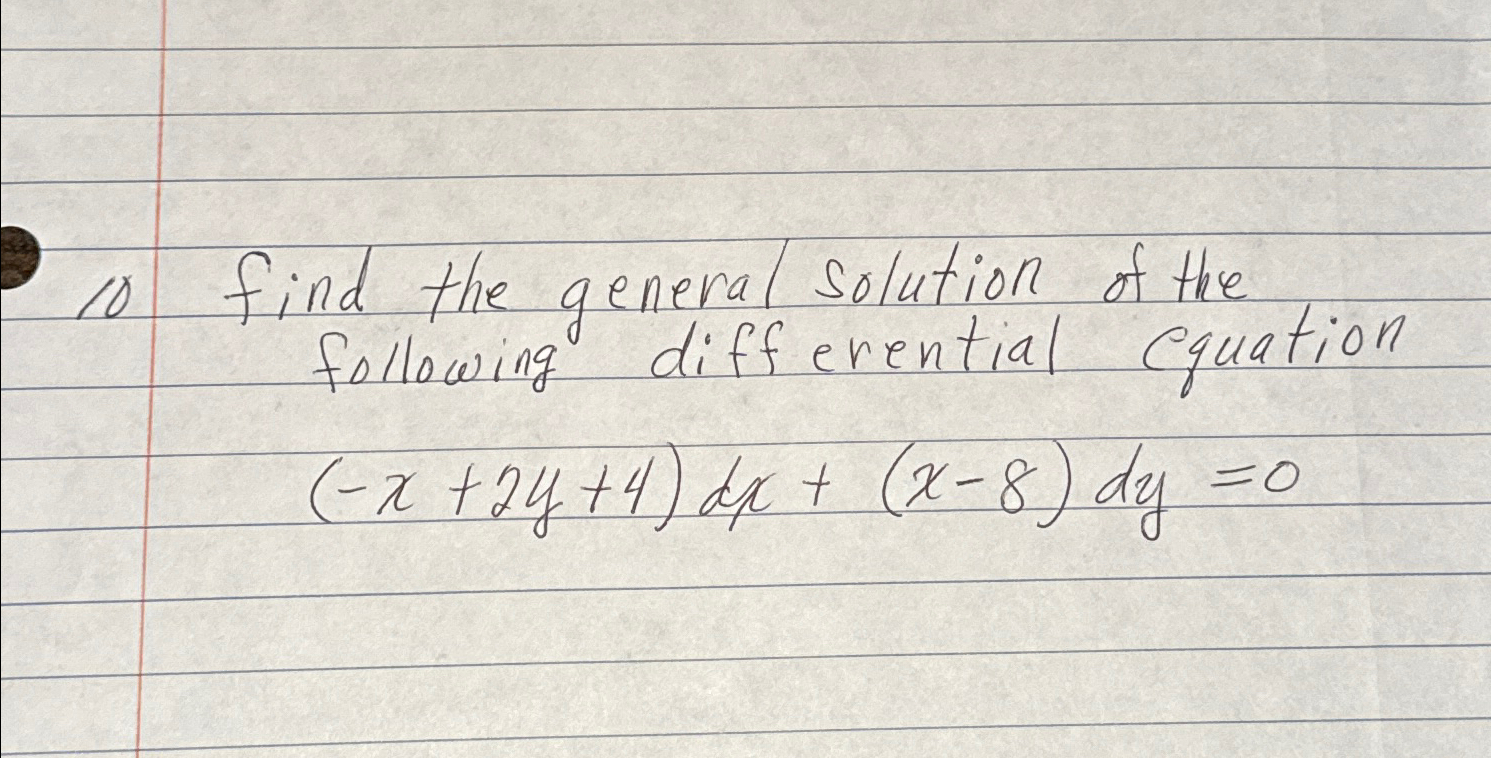 10 find the general solution of the
following differential equation
(-x + 2y + 4) dx + (x - 8) dy = 0